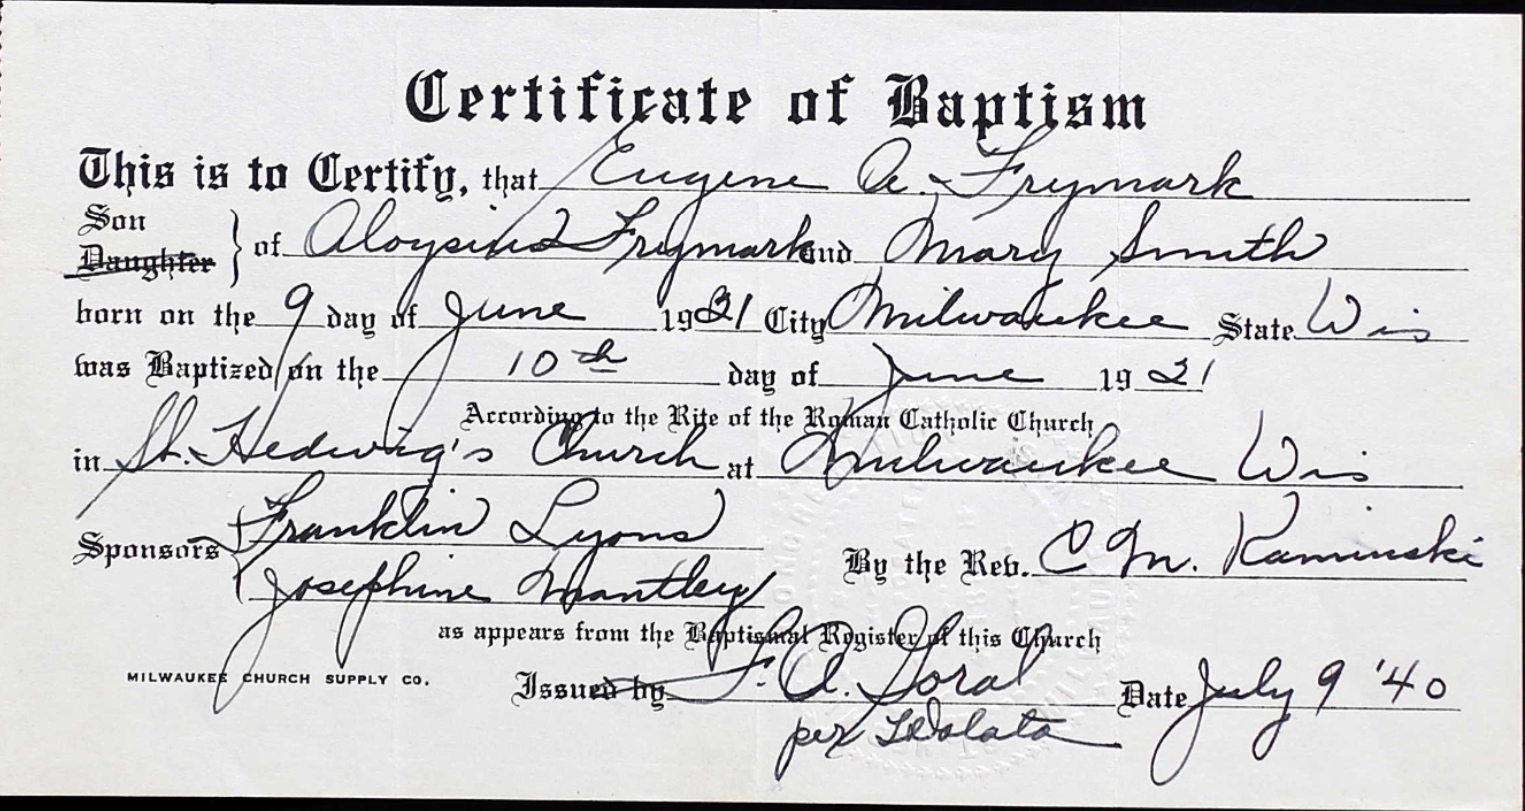 Certificate of Baptism
This is to Certify, that Eugene A. Frymark
Son
Daughter } of Aloysius Frymark and Mary Smith
born on the 9 day of June 1921 City Milwaukee State Wis
was Baptized on the 10th day of June 1921
According to the Rite of the Roman Catholic Church
in St. Hedwig's Church at Milwaukee Wis
Sponsors { Franklin Lyons
Josephine Mantley
By the Rev. C M. Kaminski
as appears from the Baptismal Register of this Church
MILWAUKEE CHURCH SUPPLY CO.
Issued by F. A. Gora Date July 9 '40
per